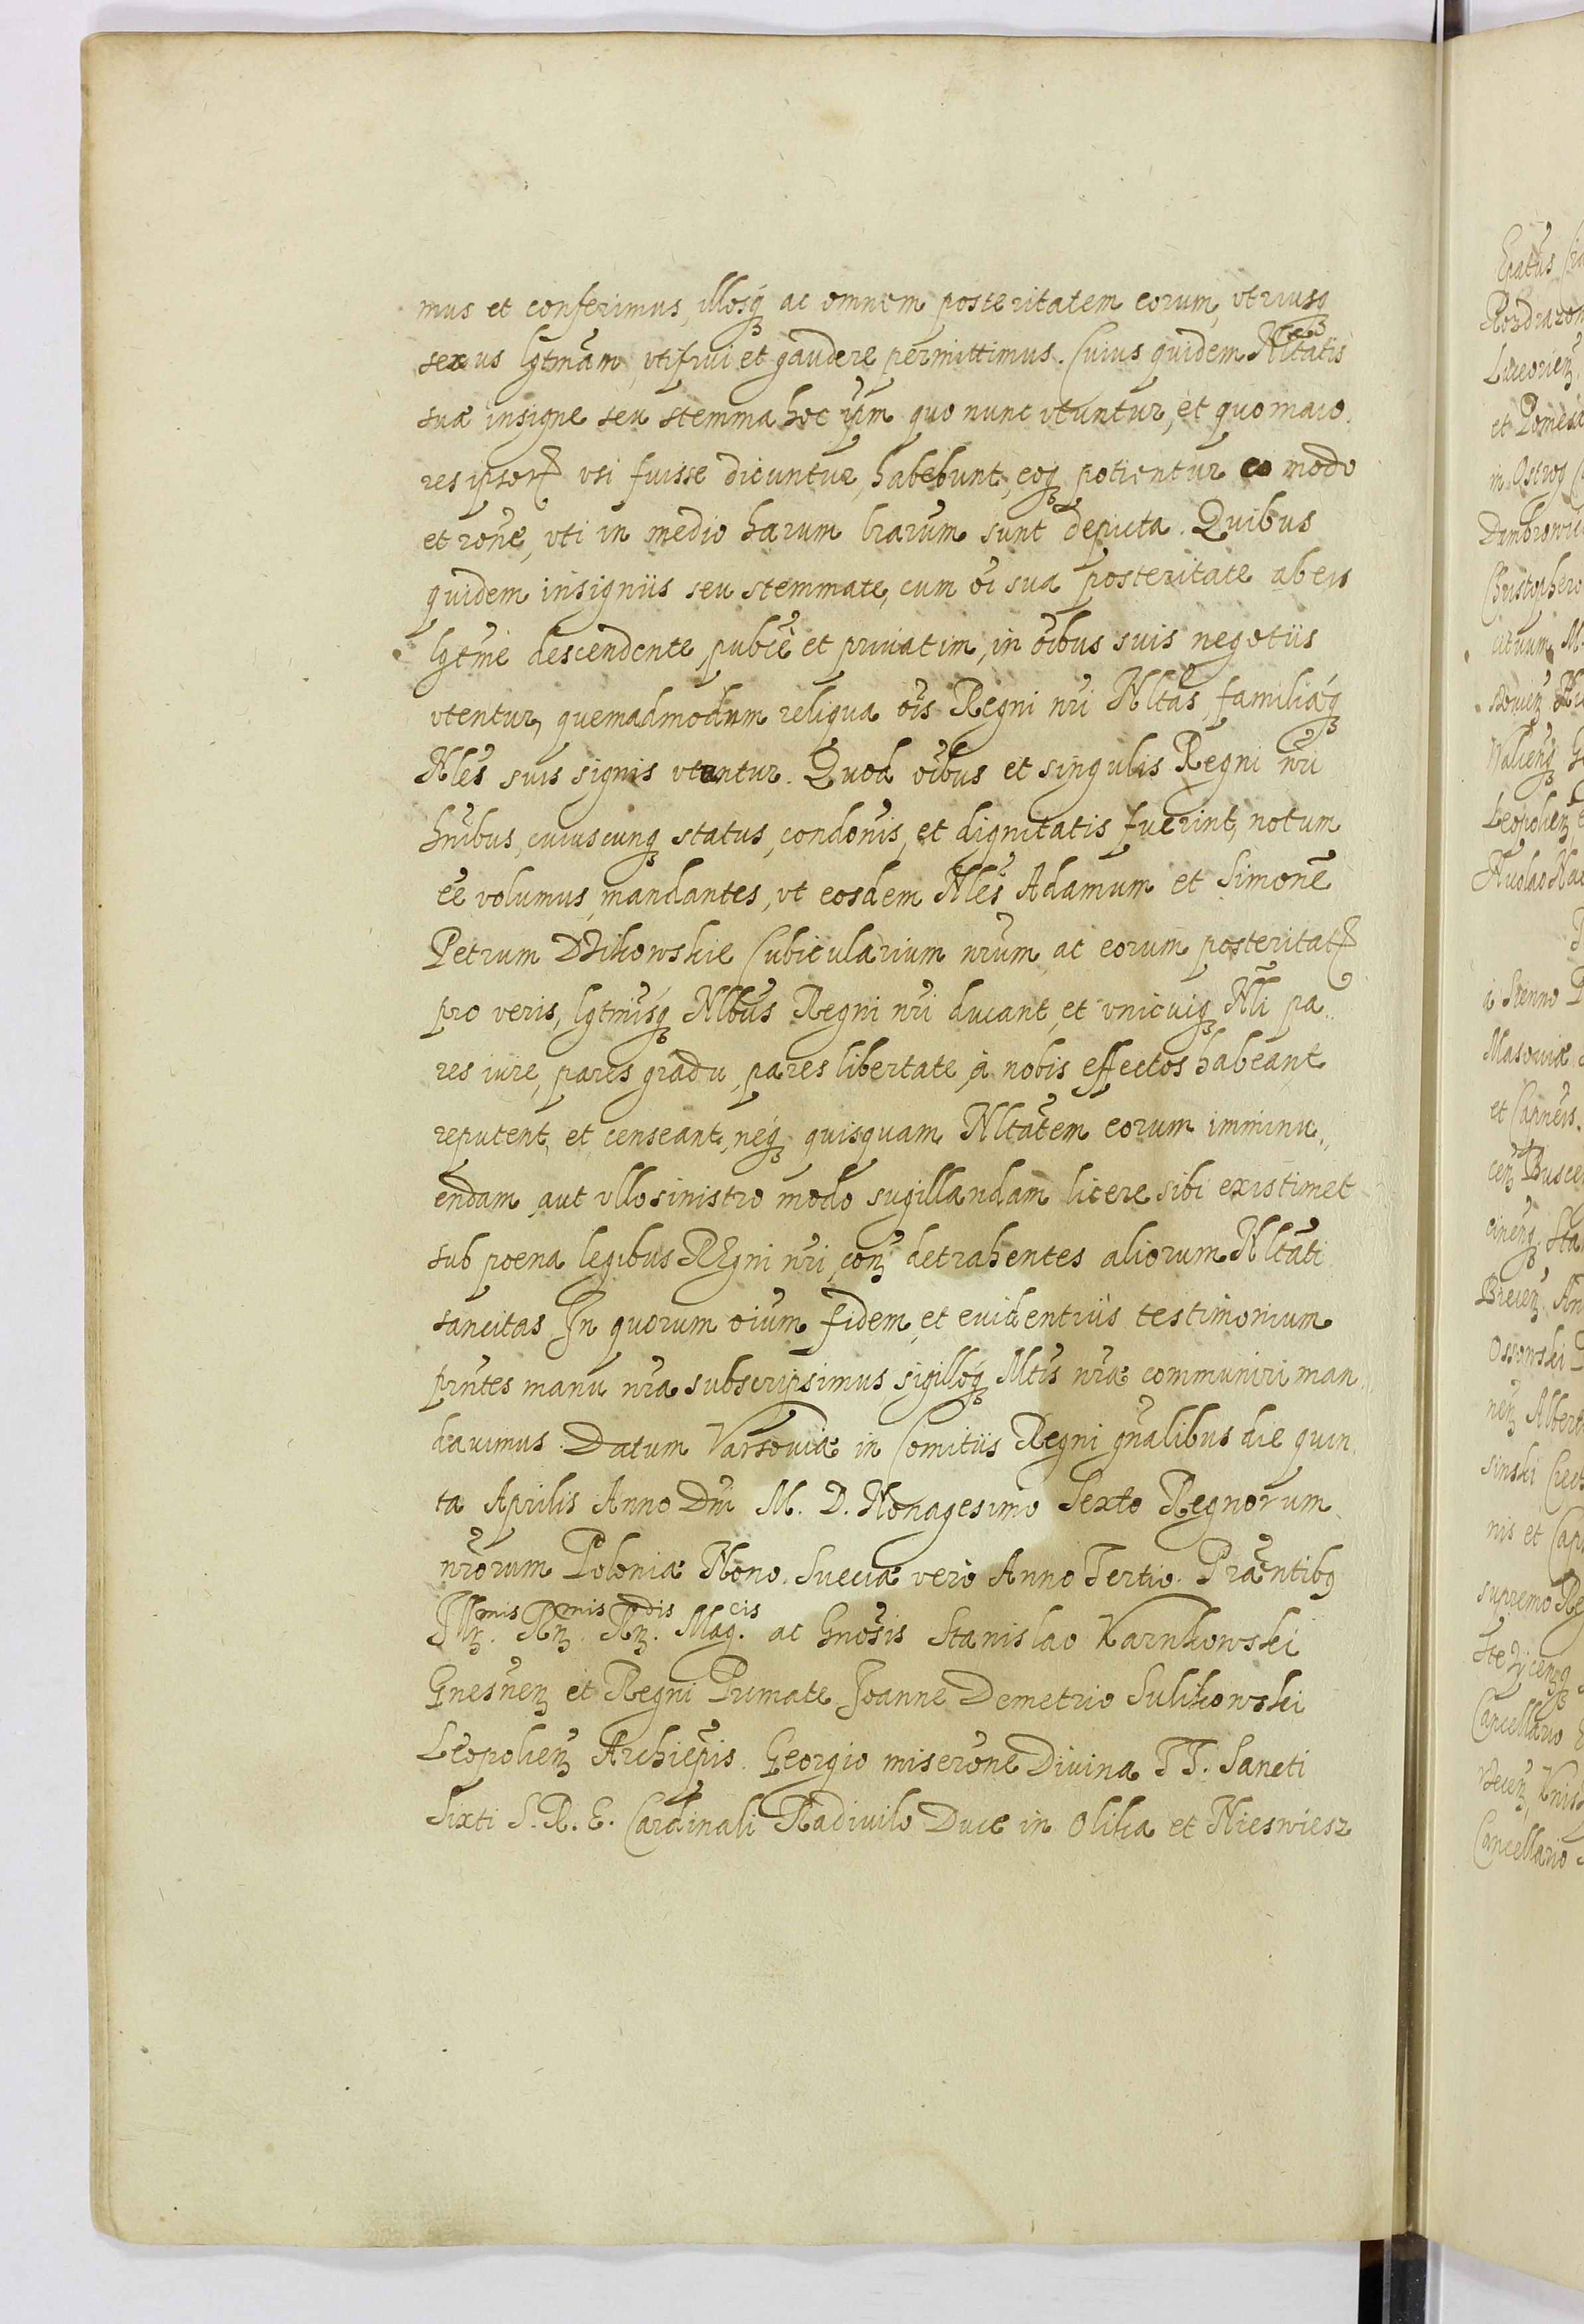 mus et conferimus, illosq́ꝫ ac omnem posteritatem eorum, vtriusqꝫ
sexus lgtmam̃, vti frui et gaudere permittimus. Cuius quidem Nltatis
suæ insigne seu stemma hoc ip̃m quo nunc vtuntur, et quo maio
res ipsorꝝ vsi fuisse dicuntur, habebunt, eoqꝫ potientur eo modo
et rõne, vti in medio harum lr̃arum sunt depicta. Quibus
quidem insigniis seu stemmate, cum õi sua posteritate ab eis
lgtmẽ descendente, pub͠ce et priuatim, in õibus suis negotiis
vtentur, quemadmodum reliqua õis Regni nr̃i Nltas, familiæq́ꝫ
Nles̃ suis signis vtuntur. Quod õibus et singulis Regni nr̃i
hnĩbus, cuiuscunqꝫ status, condõnis, et dignitatis fuerint, notum
eẽ volumus, mandantes, vt eosdem Nles̃ Adamum et Simonẽ
Petrum Dzikowskie Cubicularium nr̃um, ac eorum posteritatꝝ
pro veris, lgtmisq́ꝫ Nlbus̃ Regni nr̃i ducant, et vnicuiqꝫ Nli pa
res iure, pares gradu, pares libertate, à nobis effectos habeant
reputent, et censeant, neqꝫ quisquam Nltatem̃ eorum imminu
endam, aut vllo sinistro modo sugillandam licere sibi existimet
sub poena legibus REgni nr̃i, con̄ detrahentes aliorum Nltati
sancitas In quorum õium fidem, et euidentius testimonium
prñtes manu nr̃a subscripsimus, sigilloq́ꝫ Mtis nr̃æ communiri man
dauimus. Datum Varsouiæ in Comitiis Regni gñalibus die quin
ta Aprilis Anno Dñi M. D. Nonagesimo Sexto Regnorum
nr̃orum Poloniæ Nono. Sueciæ vero Anno Tertio. Præñtibꝫ
Illꝫ.mis Rꝫ.mis Rꝫ.dis Mag.cis ac Gnõsis Stanislao Karnkowski
Gnesñenꝫ et Regni Primate Joanne Demetrio Sulikowski
Leopolienꝫ Archiep̃is. Georgio miserõne Diuina TT. Sancti
Sixti S. R. E. Cardinali Radiuilo Duce in Olika et Nieswiesz